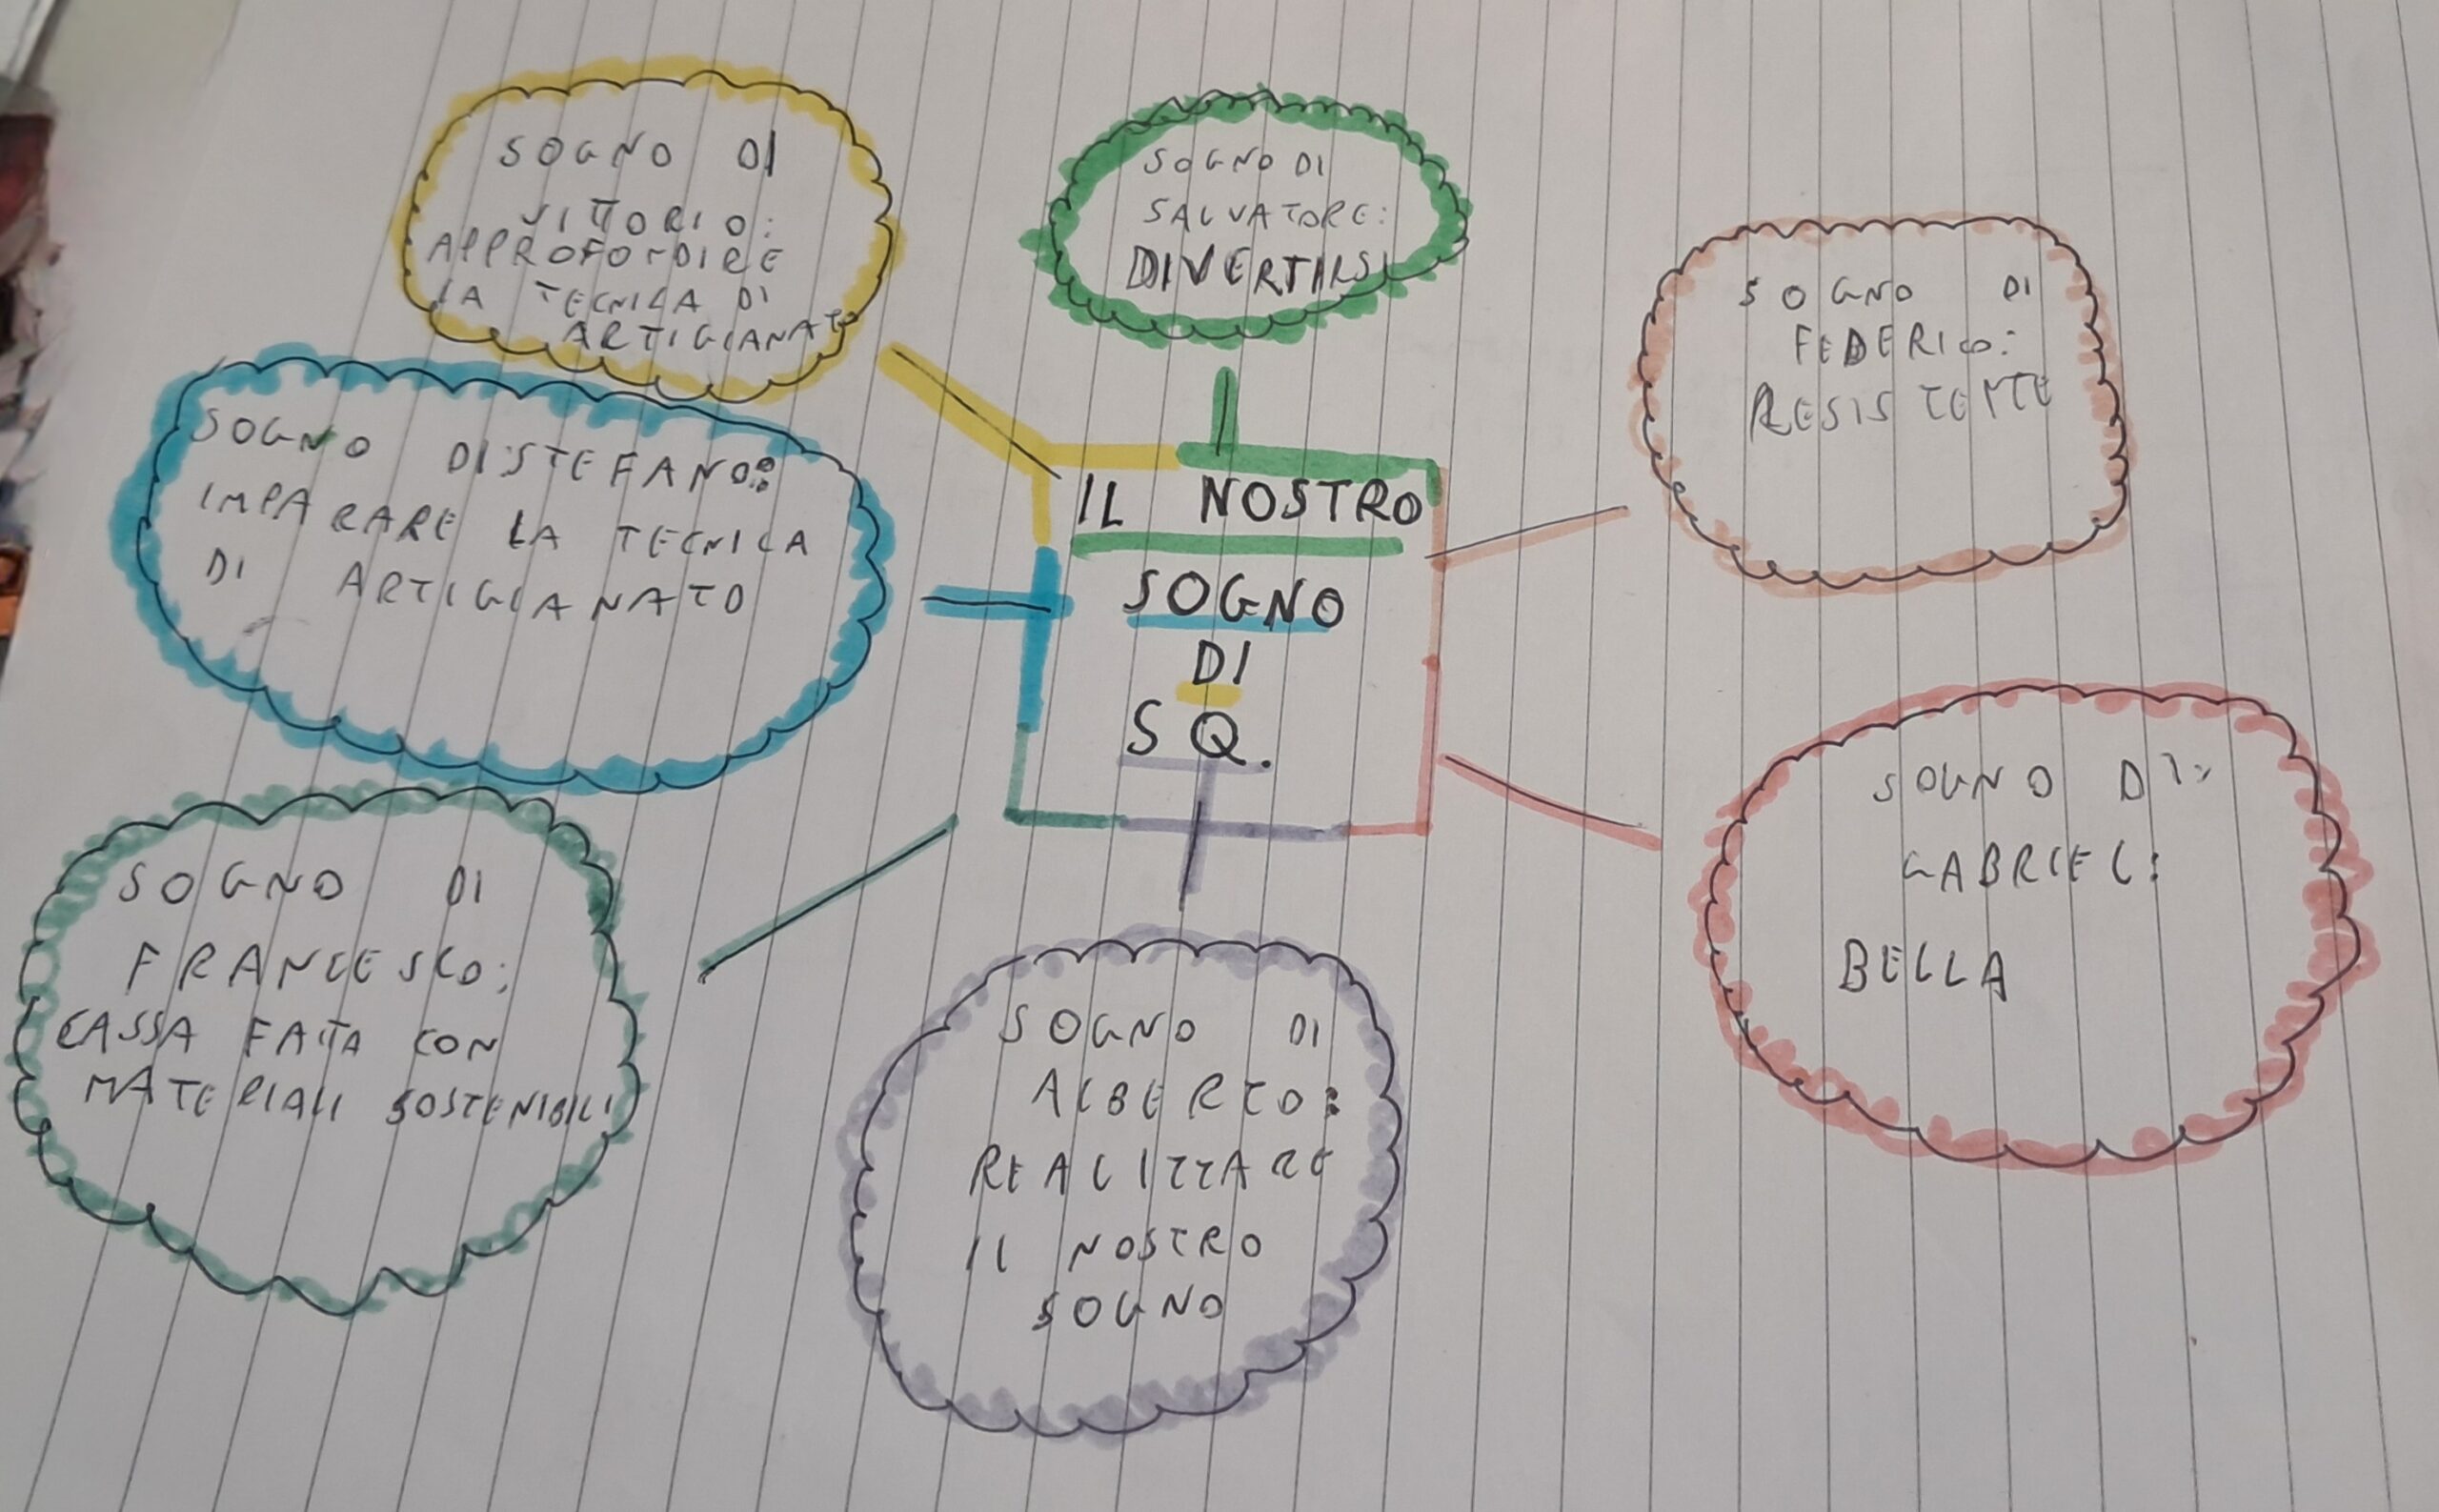 SOGNO DI
VITTORIO:
APPROFONDIRE
LA TECNICA DI
ARTIGIANATO
SOGNO DI
SALVATORE:
DIVERTIRSI
SOGNO DI
FEDERICO:
RESISTENTE
SOGNO DI STEFANO:
IMPARARE LA TECNICA
DI ARTIGIANATO
IL NOSTRO
SOGNO
DI
SQ.
SOGNO DI:
GABRIEL:
BELLA
SOGNO DI
FRANCESCO:
CASSA FATTA CON
MATERIALI SOSTENIBILI
SOGNO DI
ALBERTO:
REALIZZARE
IL NOSTRO
SOGNO